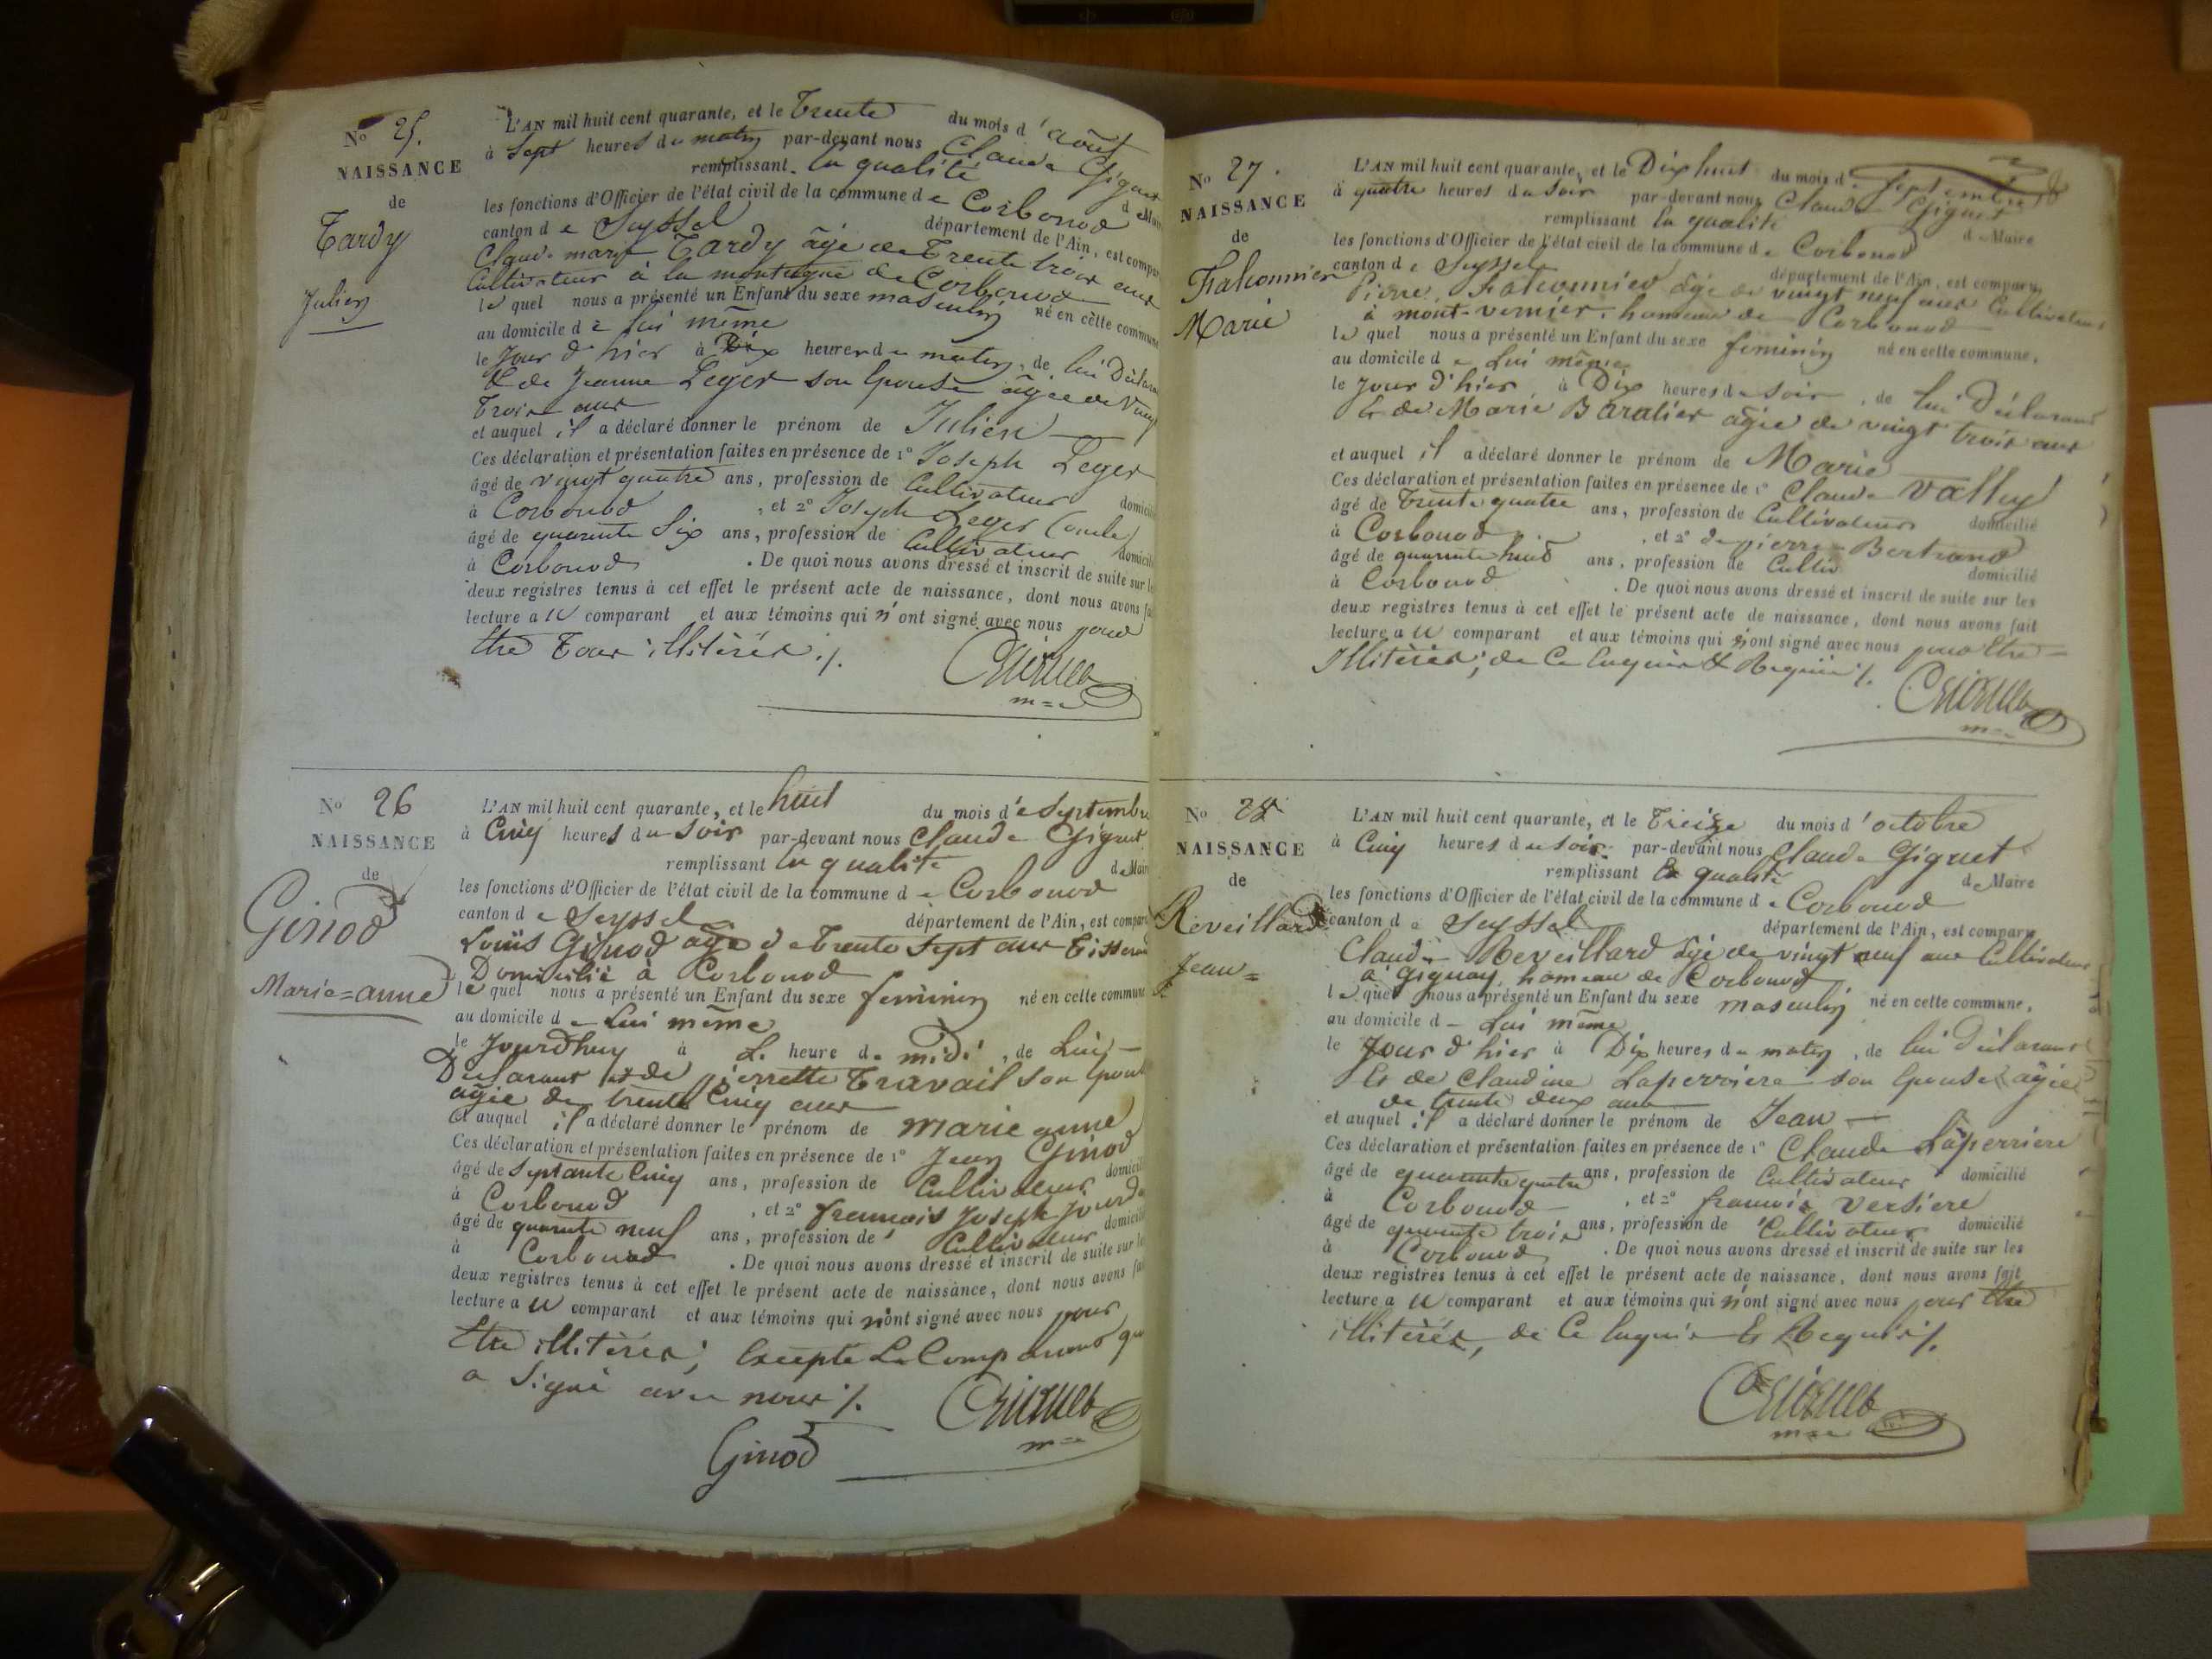 No 25.
NAISSANCE
de
Tardy
Julien
L'AN mil huit cent quarante, et le Trente du mois d'août
à Sept heures du matin par-devant nous Claude Giguet
remplissant la qualité de Maire
les fonctions d'Officier de l'état civil de la commune de Corbonod
canton de Seyssel département de l'Ain, est comparu
Claude marie Tardy âgé de Trente trois ans
Cultivateur a la montagne de Corbonod
le quel nous a présenté un Enfant du sexe masculin né en cette commune
au domicile de lui même
le Jour d'hier à Dix heures du matin, de lui Déclarant
& de Jeanne Leger son Epouse âgée de Vingt
Trois ans
et auquel il a déclaré donner le prénom de Julien
Ces déclaration et présentation faites en présence de 1° Joseph Leger
âgé de vingt quatre ans, profession de Cultivateur domicilié
à Corbonod, et 2° Joseph Leger (oncle)
âgé de quarante Six ans, profession de Cultivateur domicilié
à Corbonod. De quoi nous avons dressé et inscrit de suite sur les
deux registres tenus à cet effet le présent acte de naissance, dont nous avons fait
lecture au comparant et aux témoins qui n'ont signé avec nous pour
être Tous illitérés ./.
No 26
NAISSANCE
de
Ginod
Marie=anne
L'AN mil huit cent quarante, et le huit du mois de Septembre
à Cinq heures du Soir par-devant nous Claude Giguet
remplissant la qualité de Maire
les fonctions d'Officier de l'état civil de la commune de Corbonod
canton de Seyssel département de l'Ain, est comparu
Louis Ginod âgé de Trente Sept ans Tisserand
Domicilié à Corbonod
le quel nous a présenté un Enfant du sexe féminin né en cette commune
au domicile de Lui même
le Jourdhuy à heure de midi, de Lui
Déclarant et de pierrette Travail son Epouse
âgée de trente Cinq ans
et auquel il a déclaré donner le prénom de marie anne
Ces déclaration et présentation faites en présence de 1° Jean Ginod
âgé de Septante Cinq ans, profession de Cultivateur domicilié
à Corbonod, et 2° francois Joseph
âgé de quarante neuf ans, profession de Cultivateur domicilié
à Corbonod. De quoi nous avons dressé et inscrit de suite sur les
deux registres tenus à cet effet le présent acte de naissance, dont nous avons fait
lecture au comparant et aux témoins qui n'ont signé avec nous pour
être illitérés; Excepté Le Comparant qui
a Signé avec nous ./.
Ginod
No 27.
NAISSANCE
de
Falconnier
Marie
L'AN mil huit cent quarante, et le Dix huit du mois de Septembre
à quatre heures du Soir par-devant nous Claude Giguet
remplissant la qualité de Maire
les fonctions d'Officier de l'état civil de la commune de Corbonod
canton de Seyssel département de l'Ain, est comparu
Pierre Falconnier âgé de vingt neuf ans Cultivateur
à mont-vernier, hameau de Corbonod
le quel nous a présenté un Enfant du sexe féminin né en cette commune,
au domicile de Lui même
le Jour d'hier à Dix heures du Soir, de lui Déclarant
Et de Marie Baralier âgée de vingt trois ans
et auquel il a déclaré donner le prénom de Marie
Ces déclaration et présentation faites en présence de 1° Claude Vallly
âgé de Trente quatre ans, profession de Cultivateur domicilié
à Corbonod, et 2° de pierre Bertrand
âgé de quarante huit ans, profession de Cultiv domicilié
à Corbonod. De quoi nous avons dressé et inscrit de suite sur les
deux registres tenus à cet effet le présent acte de naissance, dont nous avons fait
lecture au comparant et aux témoins qui n'ont signé avec nous pour être
Illitérés; de Ce Enquis & Requis ./.
No 28
NAISSANCE
de
Reveillard
Jean
L'AN mil huit cent quarante, et le Treize du mois d'octobre
à Cinq heures du soir par-devant nous Claude Giguet
remplissant la qualité de Maire
les fonctions d'Officier de l'état civil de la commune de Corbonod
canton de Seyssel département de l'Ain, est comparu
Claude Reveillard âgé de vingt neuf ans Cultivateur
à Gignay, hameau de Corbonod
le quel nous a présenté un Enfant du sexe masculin né en cette commune,
au domicile de Lui même
le Jour d'hier à Dix heures du matin, de lui Déclarant
Et de Claudine Laperriere son Epouse âgée
de trente deux ans
et auquel il a déclaré donner le prénom de Jean
Ces déclaration et présentation faites en présence de 1° Claude Laperriere
âgé de quarante quatre ans, profession de Cultivateur domicilié
à Corbonod, et 2° francois Versiere
âgé de quarante trois ans, profession de Cultivateur domicilié
à Corbonod. De quoi nous avons dressé et inscrit de suite sur les
deux registres tenus à cet effet le présent acte de naissance, dont nous avons fait
lecture au comparant et aux témoins qui n'ont signé avec nous pour être
illitérés, de Ce Enquis Et Requis ./.